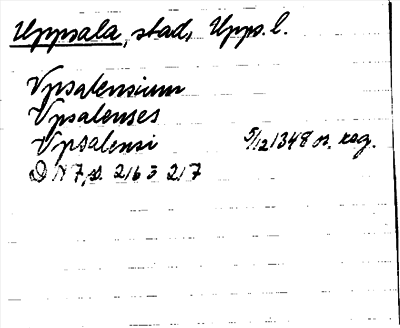 Uppsala, stad, Upps. l.
Vpsalensium
Vpsalenses
Vpsalensi 5/12 1348 or. reg.
DN 7, s. 216 o 217